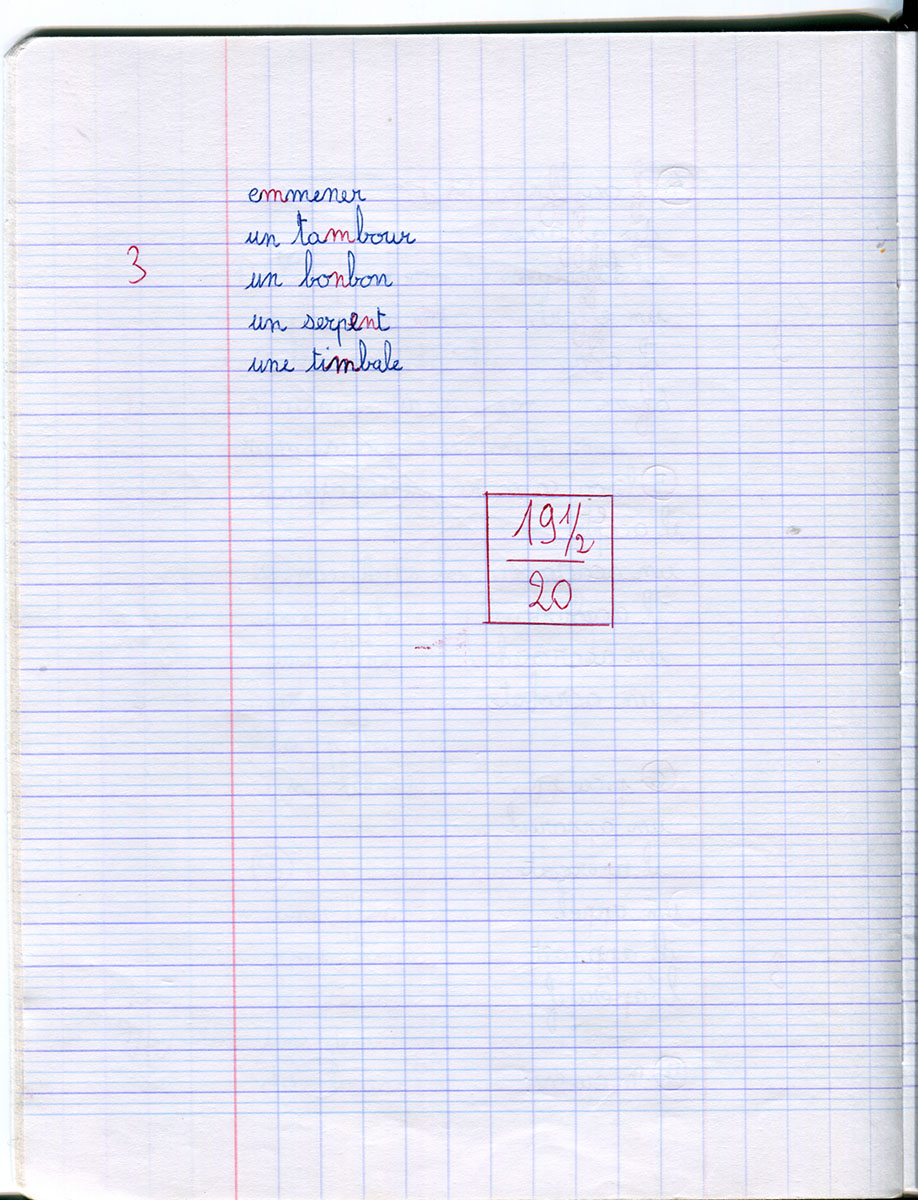 emmener
un tambour
3
un bonbon
un serpent
une timbale
19 1/2
20